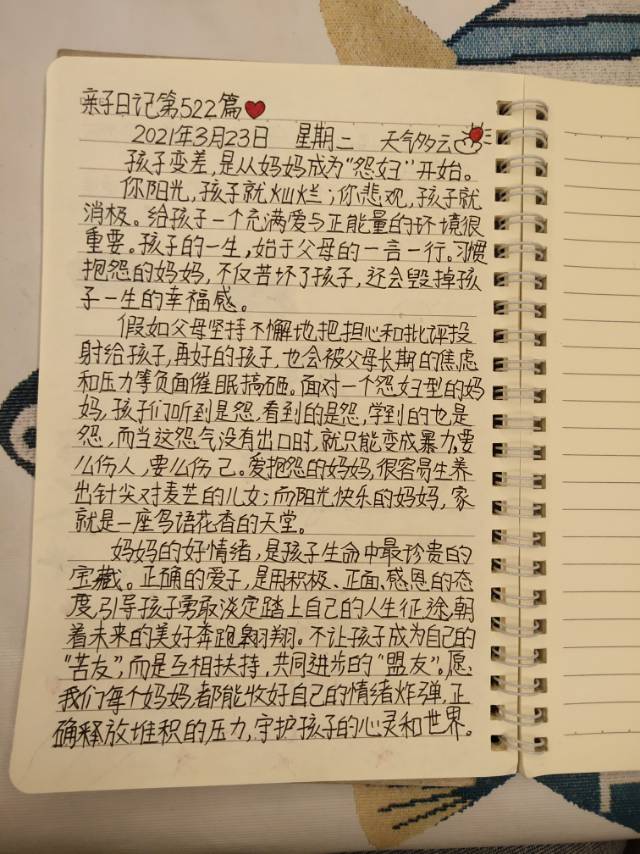 亲子日记第522篇
2021年3月23日 星期二 天气多云
孩子变差，是从妈妈成为“怨妇”开始。
你阳光，孩子就灿烂；你悲观，孩子就
消极。给孩子一个充满爱与正能量的环境很
重要。孩子的一生，始于父母的一言一行。习惯
抱怨的妈妈，不仅苦坏了孩子，还会毁掉孩
子一生的幸福感。
假如父母坚持不懈地把担心和批评投
射给孩子，再好的孩子，也会被父母长期的焦虑
和压力等负面催眠搞砸。面对一个怨妇型的妈
妈，孩子们听到是怨，看到的是怨，学到的也是
怨，而当这怨气没有出口时，就只能变成暴力，要
么伤人，要么伤己。爱抱怨的妈妈，很容易生养
出针尖对麦芒的儿女；而阳光快乐的妈妈，家
就是一座鸟语花香的天堂。
妈妈的好情绪，是孩子生命中最珍贵的
宝藏。正确的爱子，是用积极、正面、感恩的态
度，引导孩子勇敢淡定踏上自己的人生征途，朝
着未来的美好奔跑翱翔。不让孩子成为自己的
“苦友”，而是互相扶持，共同进步的“盟友”。愿
我们每个妈妈，都能收好自己的情绪炸弹，正
确释放堆积的压力，守护孩子的心灵和世界。